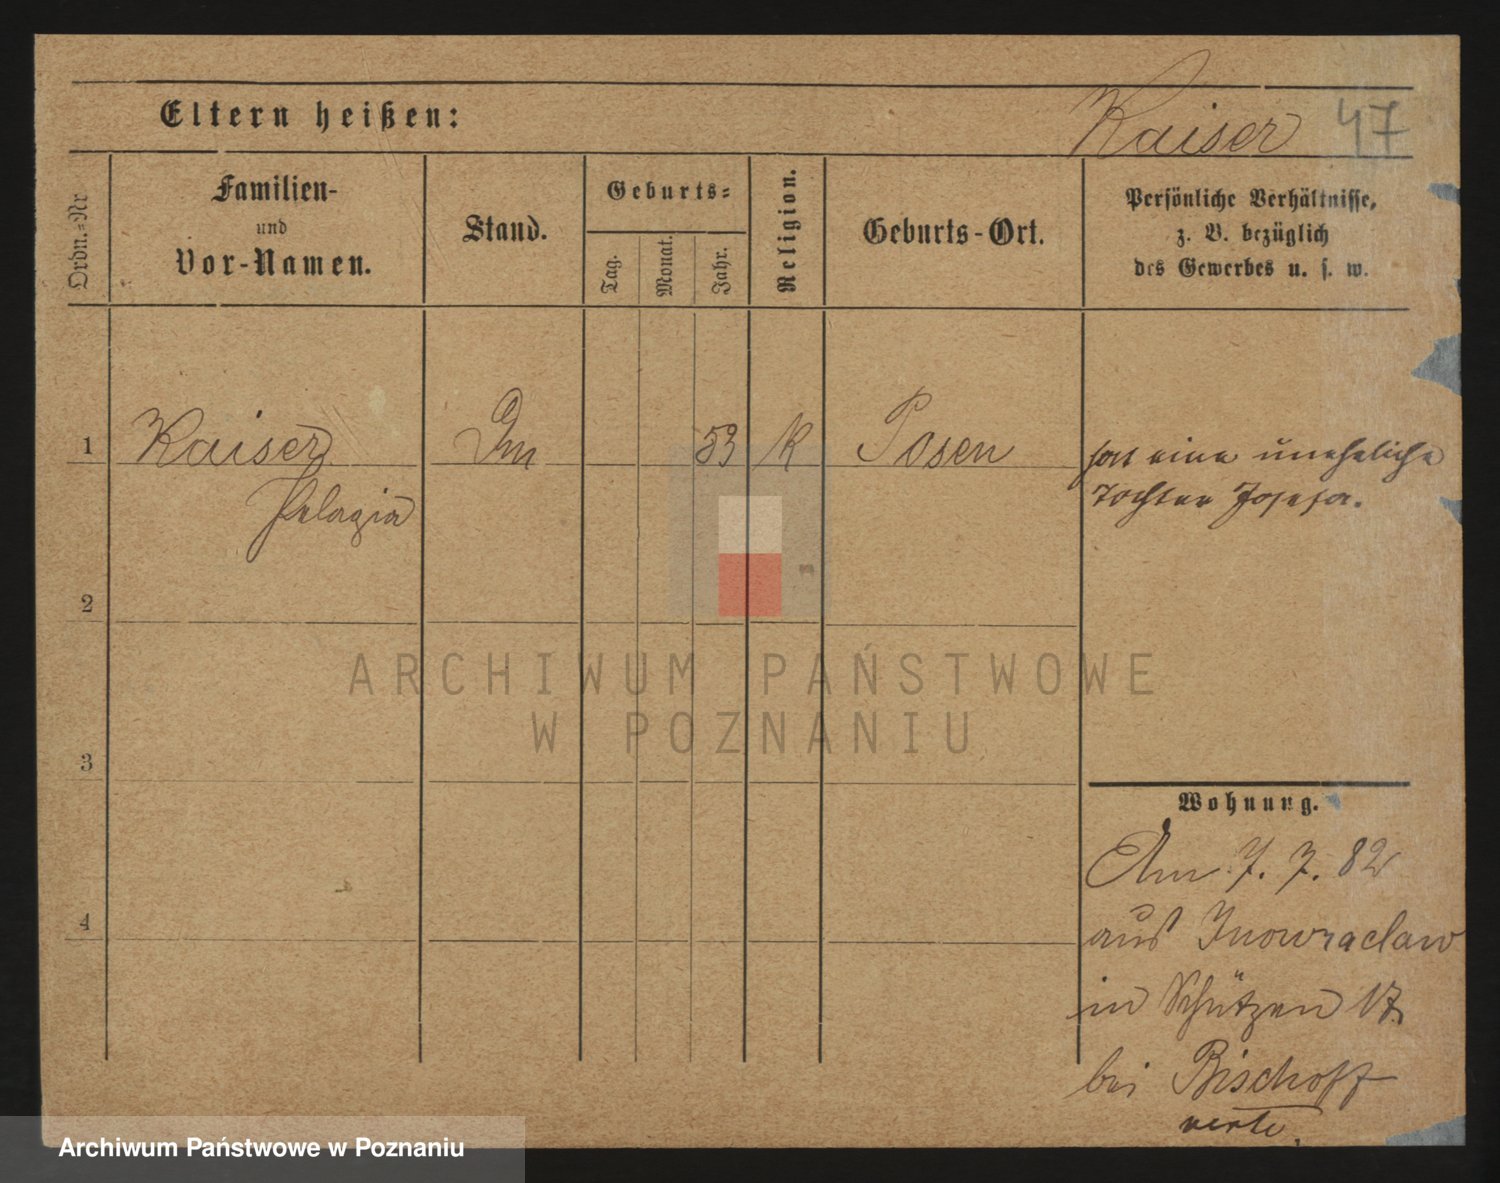 Eltern heißen:
Kaiser 47
Ordn.=Nr
Familien-
und
Vor-Namen.
Stand.
Geburts=
Tag.
Monat.
Jahr.
Religion.
Geburts-Ort.
Persönliche Verhältnisse,
z. B. bezüglich
des Gewerbes u. s. w.
1 Kaiser 53 k Posen
Pelagia
hat eine uneheliche
Tochter Josefa.
2
3
4
Wohnung.
Am 7. 7. 82
aus Inowraclaw
in Schützen 17
bei Bischoff
verte.
ARCHIWUM PAŃSTWOWE
W POZNANIU
Archiwum Państwowe w Poznaniu